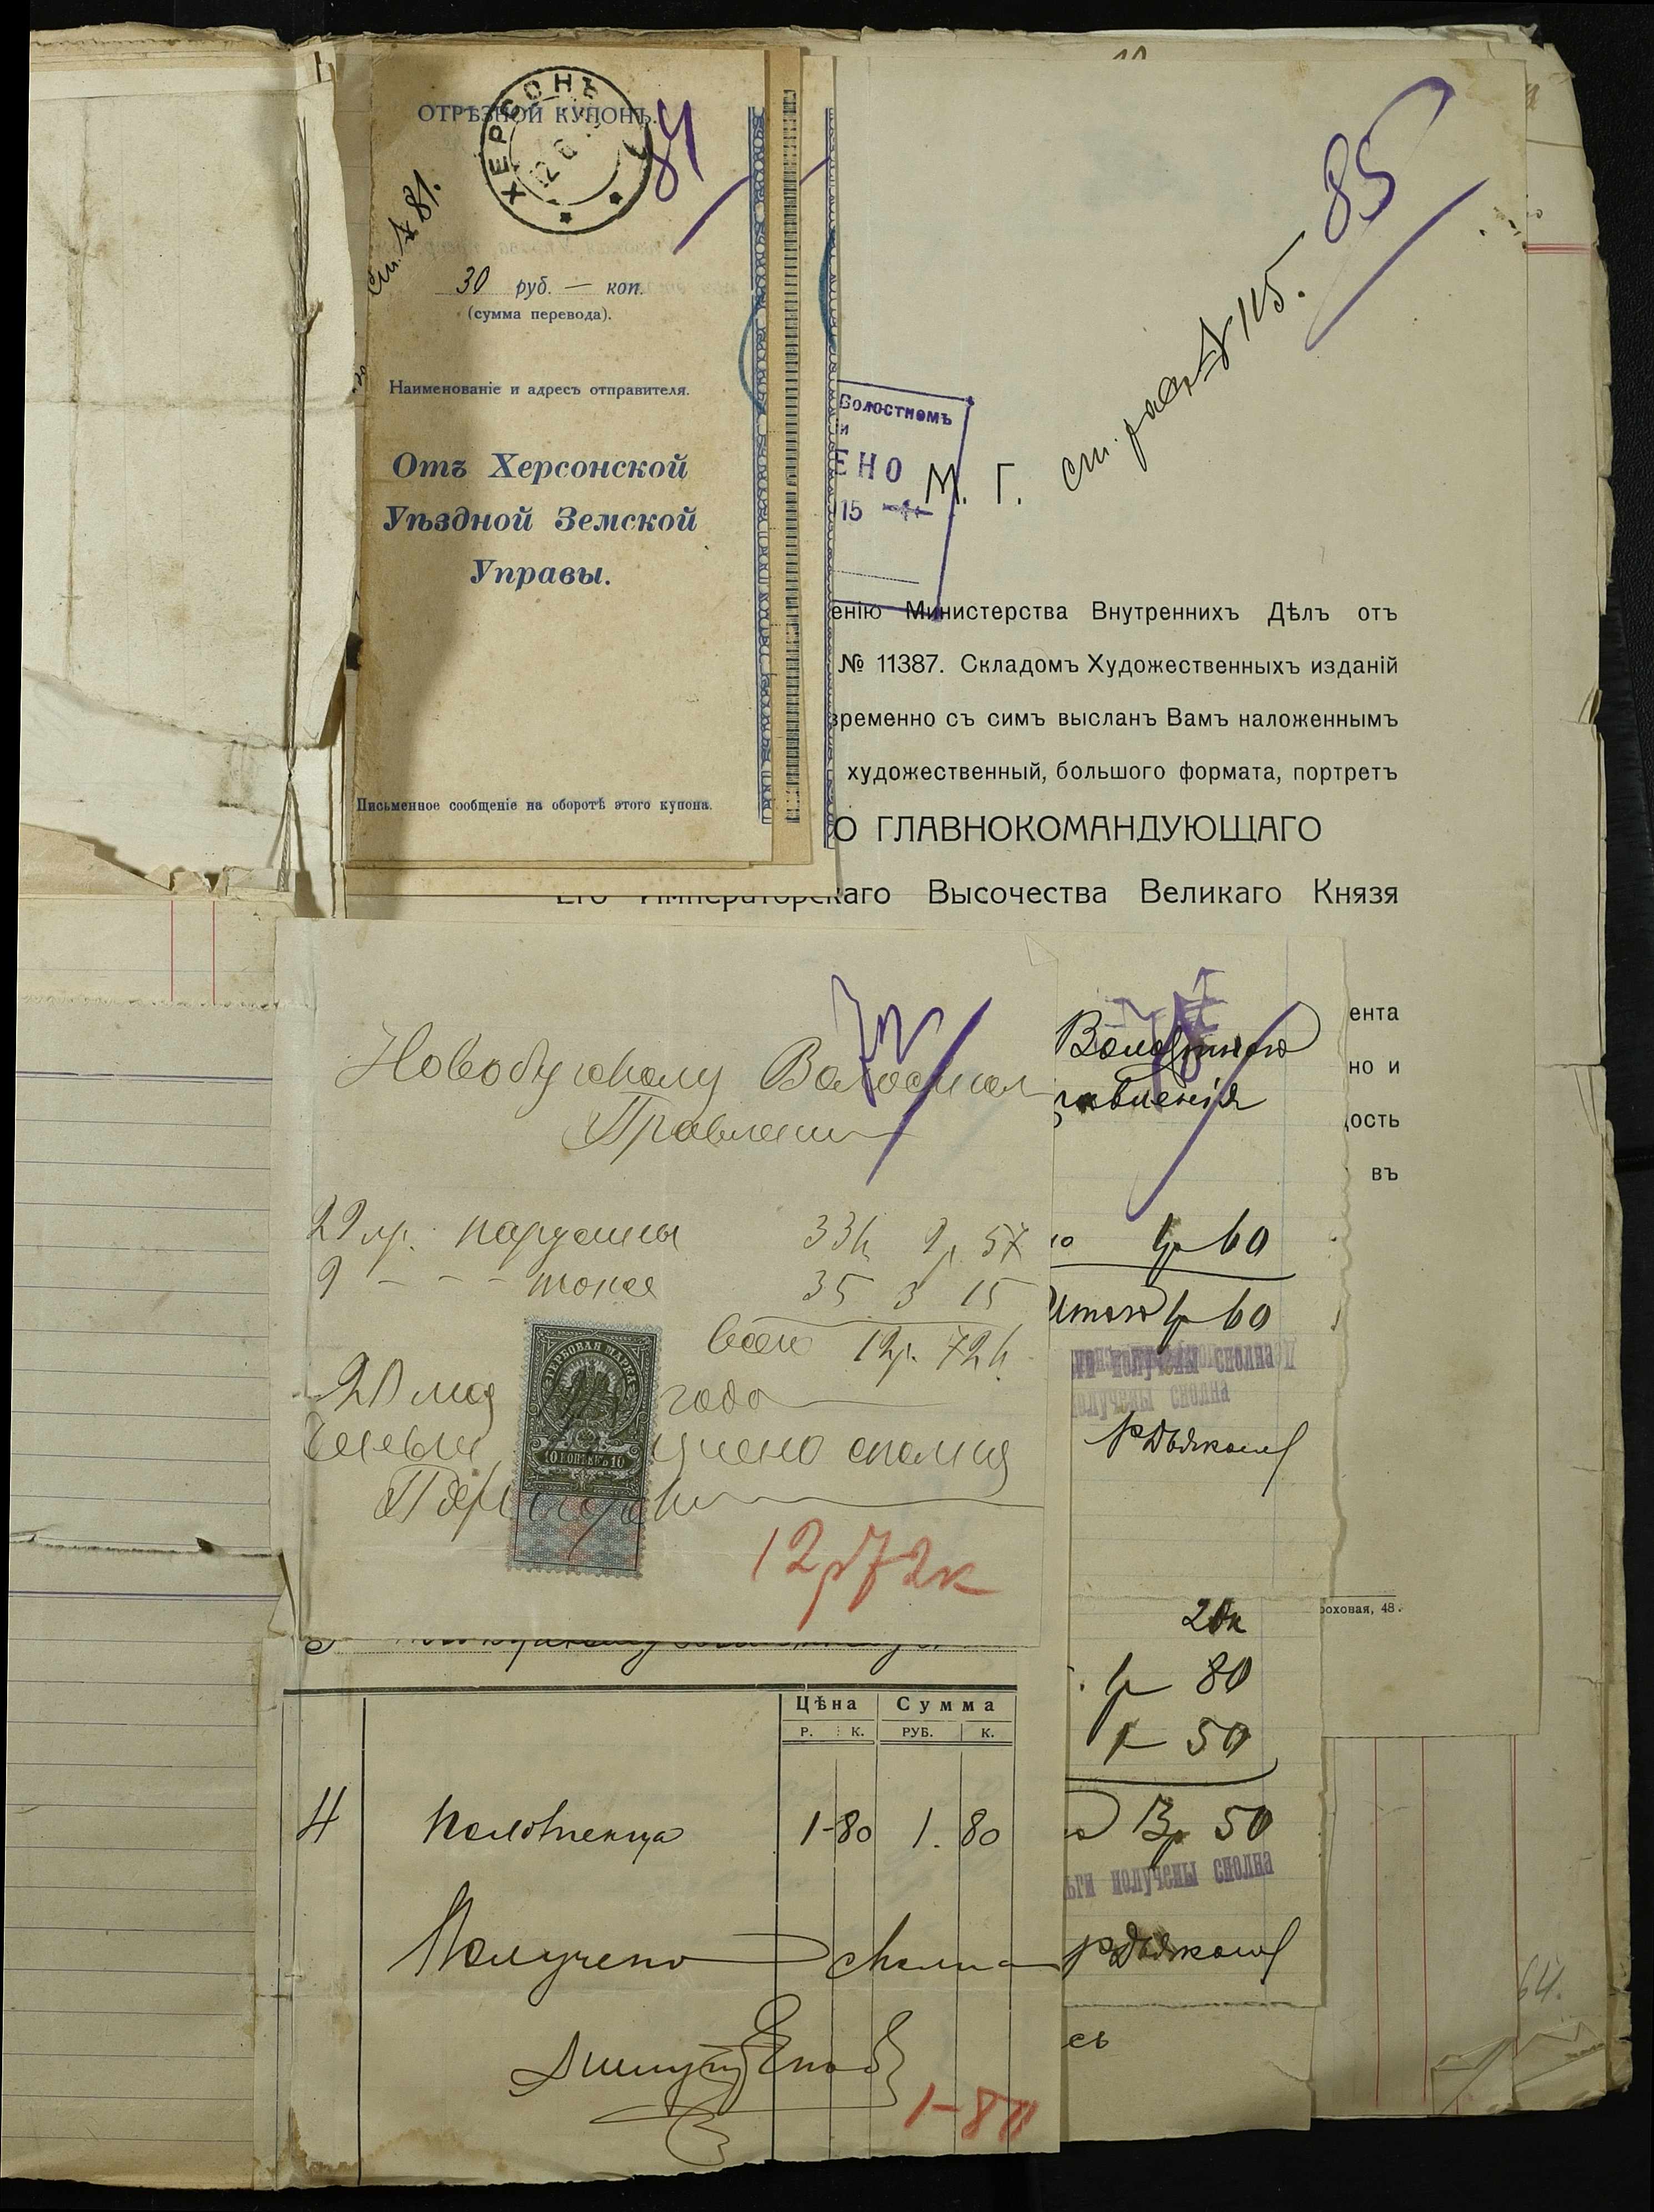 ОТРѢЗНОЙ КУПОНЪ.
ХЕРСОНЪ
84
см. № 81.
30 руб. — коп.
(сумма перевода).
Наименованіе и адресъ отправителя.
Отъ Херсонской
Уѣздной Земской
Управы.
Письменное сообщеніе на оборотѣ этого купона.
85
№ 115.
Волостномъ
ЕНО
15
М. Г.
енію Министерства Внутреннихъ Дѣлъ отъ
№ 11387. Складомъ Художественныхъ изданій
временно съ симъ высланъ Вамъ наложеннымъ
художественный, большого формата, портретъ
О ГЛАВНОКОМАНДУЮЩАГО
Его Императорскаго Высочества Великаго Князя
ента
но и
дость
въ
роховая, 48.
72
Новобугскому Волостном
Правлению
33к 9р 57
35 3 15
всего 12р. 72к.
20 мая года
ГЕРБОВАЯ МАРКА
10 КОПѢЕКЪ 10
Деньги сполна
12р72к
Волостного
равленія
1р 60
Итого 1р 60
получены сполна
получены сполна
20к
1р 80
1 50
3р 50
ьги получены сполна
есь
Цѣна Сумма
Р. К. РУБ. К.
4 Полотенца 1-80 1. 80
Получено сполна
1-80
64.